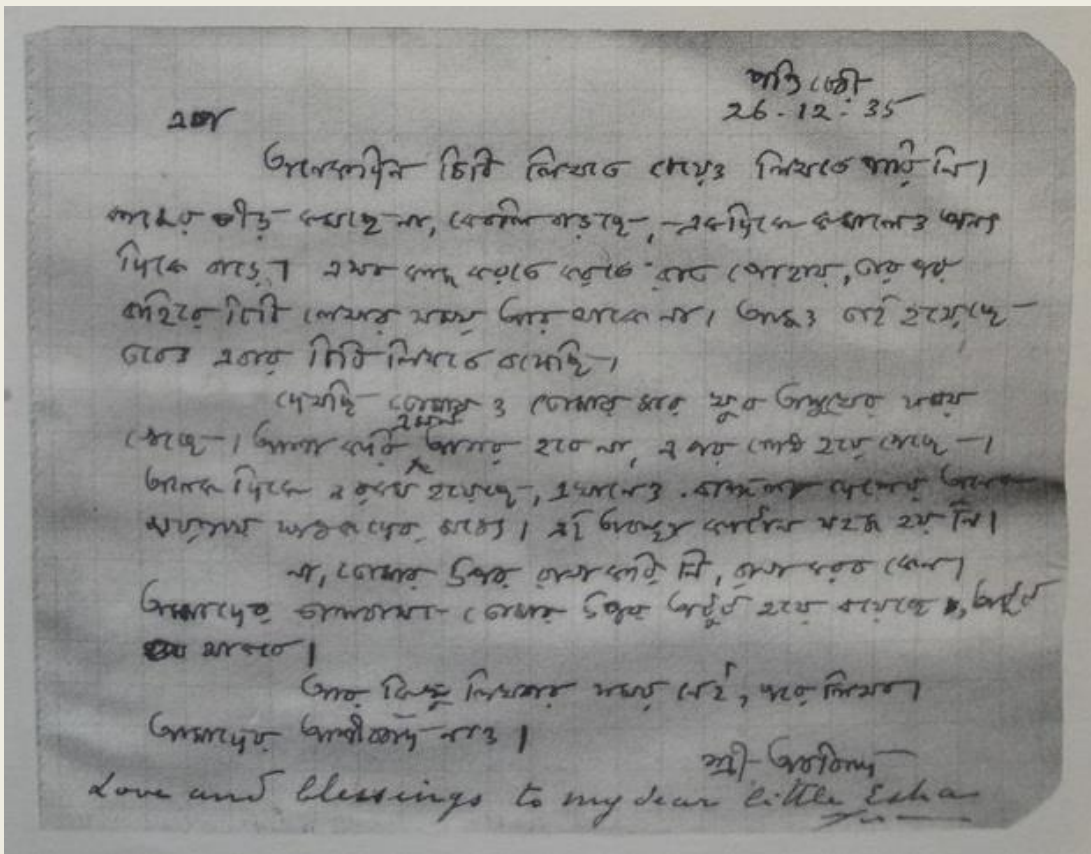 পণ্ডিচেরী
26-12-35
এষা
অনেকদিন চিঠি লিখতে চেয়েও লিখতে পারি নি।
কাজের ভীড় কমছে না, কেবলি বাড়ছে, –একদিকে কমালেও অন্য
দিকে বাড়ে। এখন কাজ করতে করতে রাত পোহায়, তার পর
বাহিরে চিঠি লেখার সময় আর থাকে না। আজও তাই হয়েছে–
তবে এবার চিঠি লিখতে বসেছি।
দেখছি তোমার ও তোমার মার খুব অসুখের সময়
গেছে–। আশা করি এমন আবার হবে না, এ পর শেষ হয়ে গেছে–।
অনেক দিকে এরকম হয়েছে, এখানেও বাংলা দেশের অনেক
সাধকদের মধ্যে। এই অবস্থা কাটান সহজ হয় নি।
না, তোমার উপর রাগ করি নি, রাগ করব কেন।
আমাদের ভালবাসা তোমার উপর অটুট হয়ে রয়েছে, অটুট
থাকবে।
আর কিছু লিখবার সময় নেই, পরে লিখব।
আমাদের আশীর্ব্বাদ নাও।
শ্রী অরবিন্দ
Love and blessings to my dear little Esha